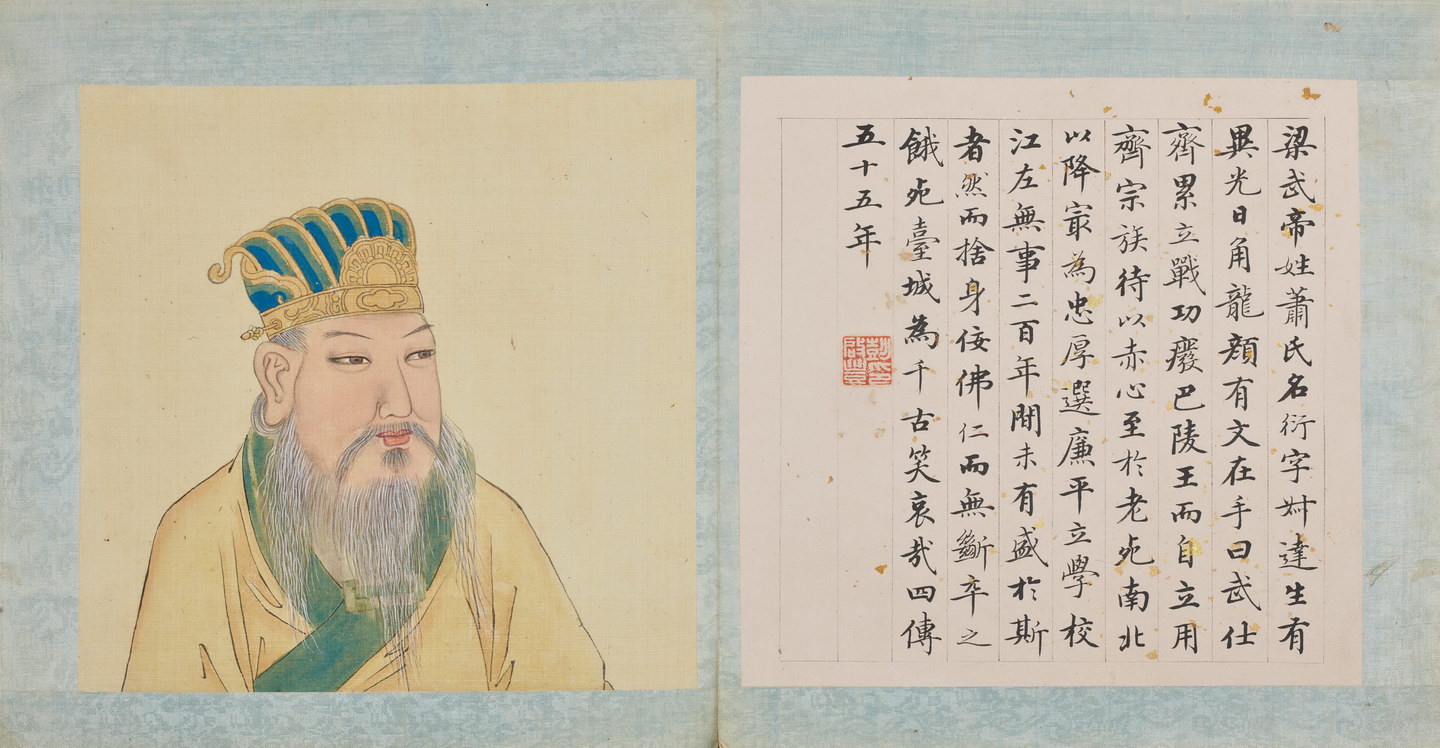 梁武帝姓蕭氏名衍字尗達生有
異光日角龍顏有文在手曰武仕
齊累立戰功癈巴陵王而自立用
齊宗族待以赤心至於老死南北
以降冣為忠厚選廉平立學校
江左無事二百年間未有盛於斯
者然而捨身佞佛仁而無斷卒之
餓死臺城為千古笑哀哉四傳
五十五年